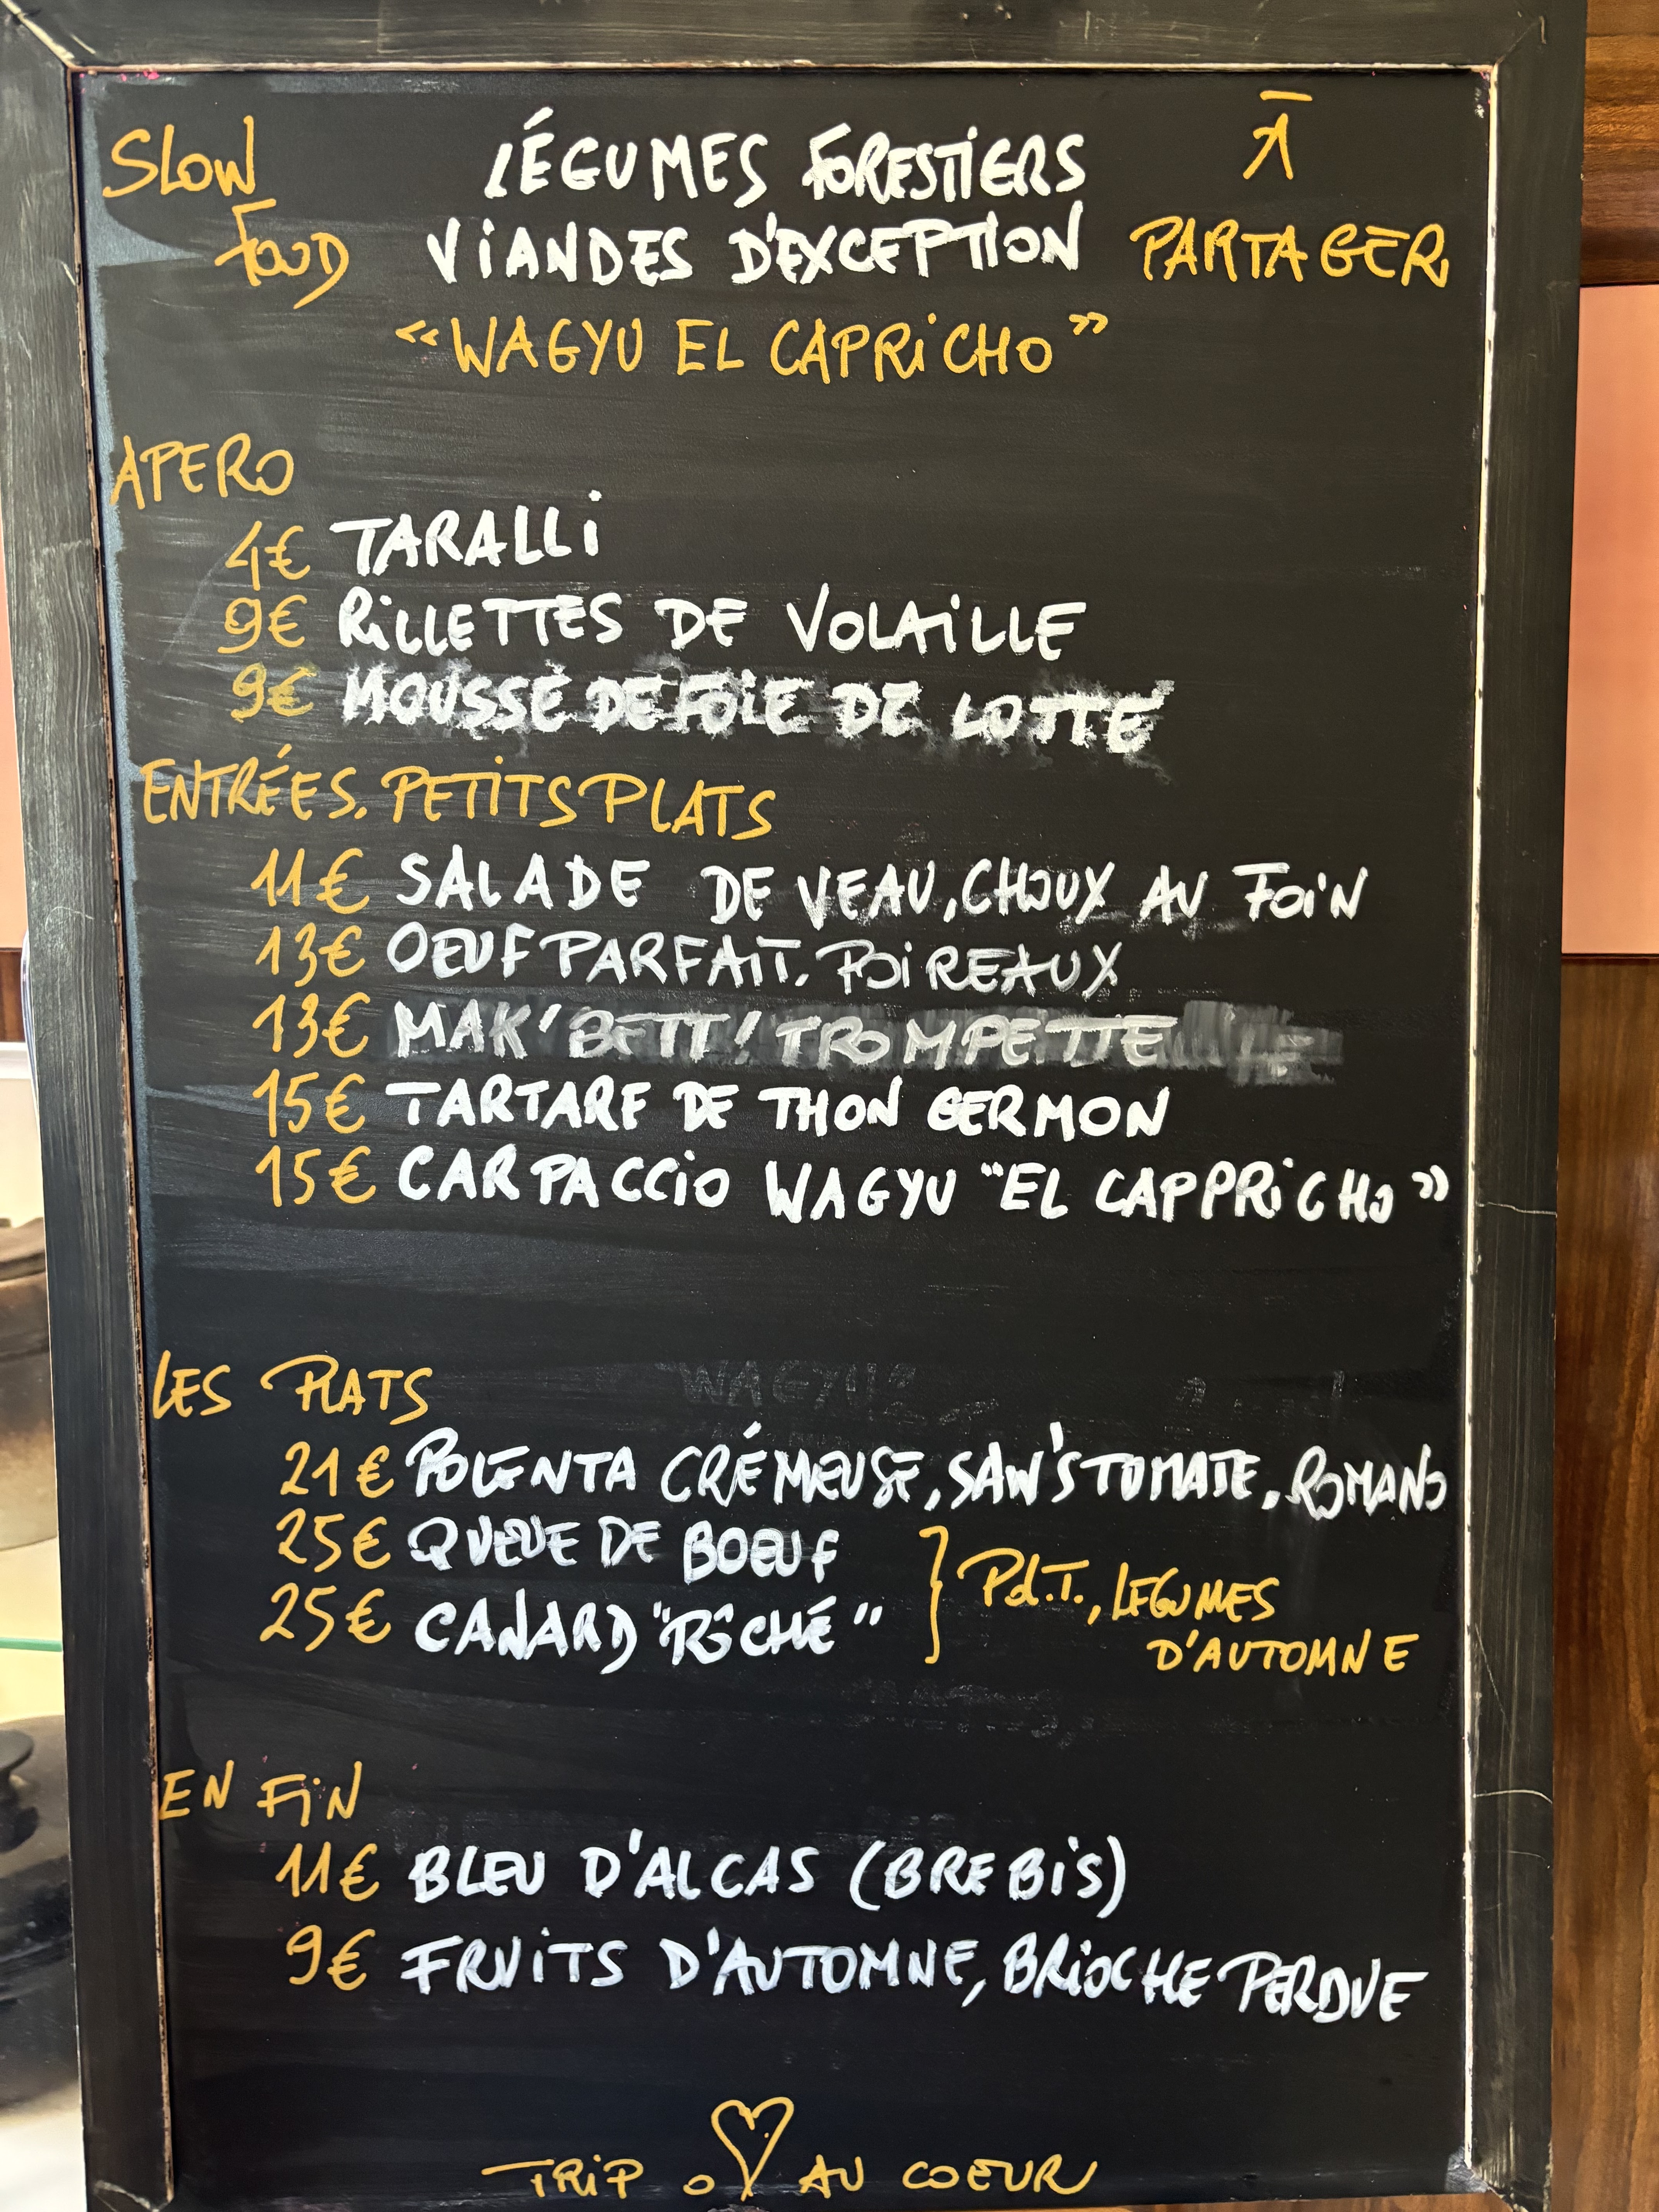 SLOW
FOOD
LÉGUMES FORESTIERS
VIANDES D'EXCEPTION
"WAGYU EL CAPRICHO"
À
PARTAGER
APERO
4€ TARALLI
9€ RILLETTES DE VOLAILLE
9€ MOUSSE DE FOIE DE LOTTE
ENTRÉES. PETITS PLATS
11€ SALADE DE VEAU, CHOUX AU FOIN
13€ OEUF PARFAIT. POIREAUX
13€ MAK' BETT! TROMPETTE
15€ TARTARE DE THON GERMON
15€ CARPACCIO WAGYU "EL CAPPRICHO"
LES PLATS
21€ POLENTA CRÉMEUSE, SAW'S TOMATE, ROMANO
25€ QUEUE DE BOEUF
25€ CANARD "RICHÉ"
} P.d.T., LEGUMES
D'AUTOMNE
EN FIN
11€ BLEU D'ALCAS (BREBIS)
9€ FRUITS D'AUTOMNE, BRIOCHE PERDUE
TRIP O AU COEUR